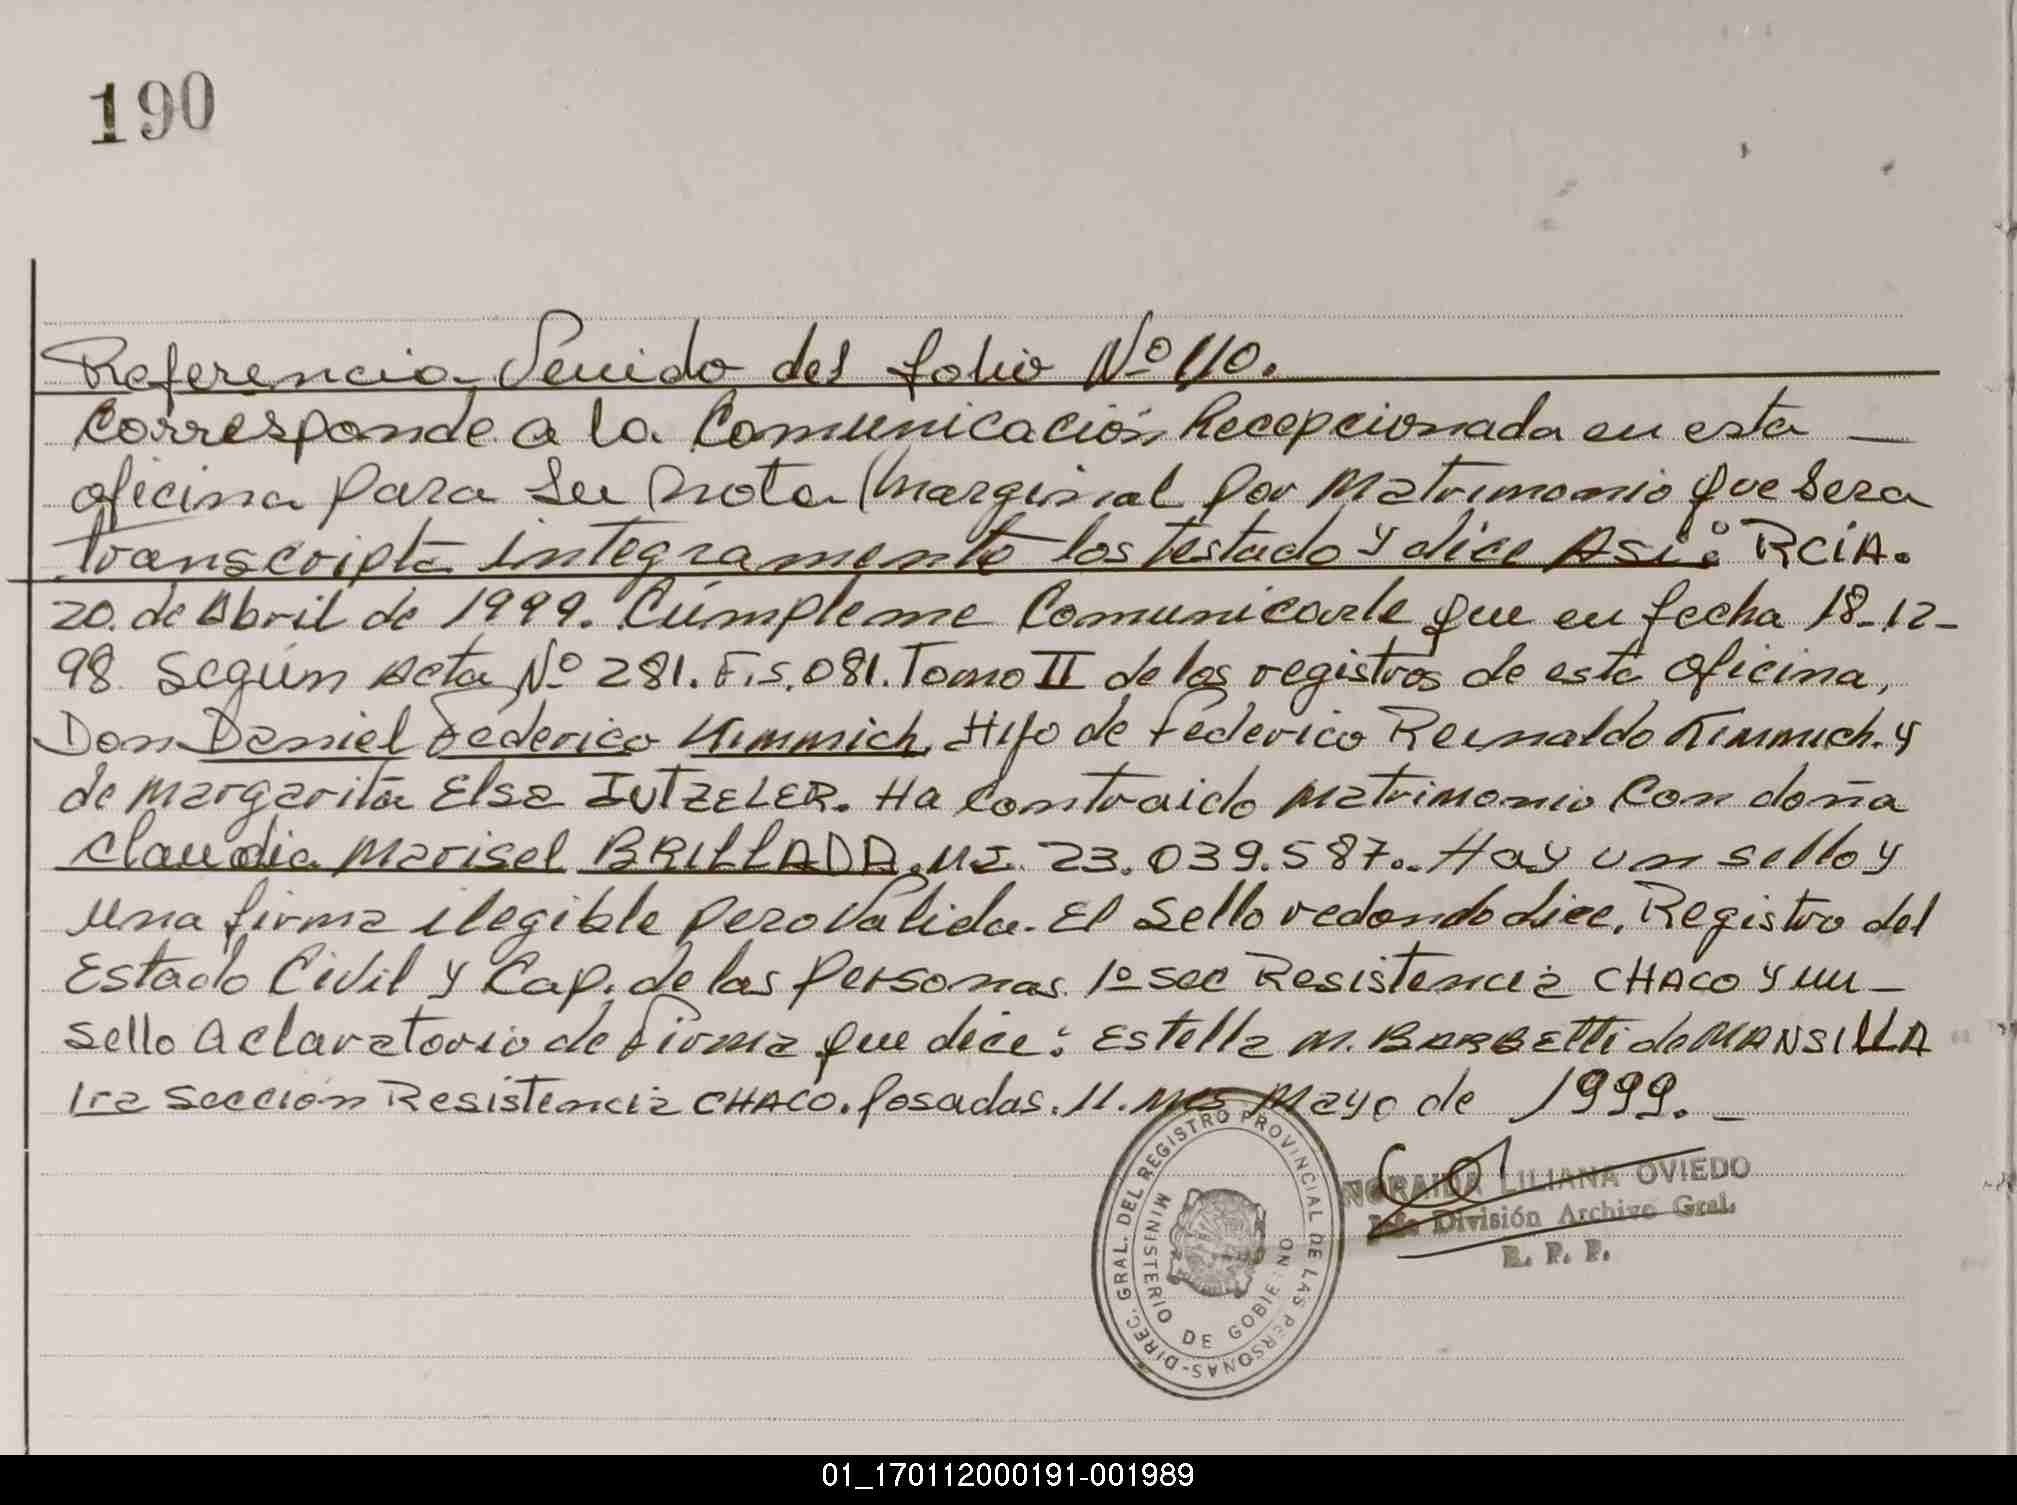 190
Referencia Venido del folio Nº 110.
Corresponde a la Comunicación Recepcionada en esta —
oficina para su nota marginal por Matrimonio que sera
transcripta integramente los testado y dice Asi: RCIA.
20. de Abril de 1999. Cúmpleme Comunicarle que en fecha 18-12-
98. Según Acta Nº 281. F.s. 081. Tomo II de los registros de esta oficina,
Don Daniel Federico Kimmich, Hijo de Federico Reinaldo Kimmich. y
de Margarita Elsa IUTZELER. Ha contraido matrimonio con doña
Claudia Marisel BRILLADA. M.I. 23.039.587.. Hay un sello y
una firma ilegible pero valida. El sello redondo dice, Registro del
Estado Civil y Cap. de las personas 1º sec Resistencia CHACO y un —
sello aclaratorio de firma que dice: Estella M. BARBEtti de MANSILLA
1ra seccion Resistencia CHACO. Posadas. 11. mes Mayo de 1999. —
DIREC. GRAL. DEL REGISTRO PROVINCIAL DE LAS PERSONAS-
MINISTERIO DE GOBIERNO
NORAIDA LILIANA OVIEDO
Jefa División Archivo Gral.
R. P. P.
01_170112000191-001989